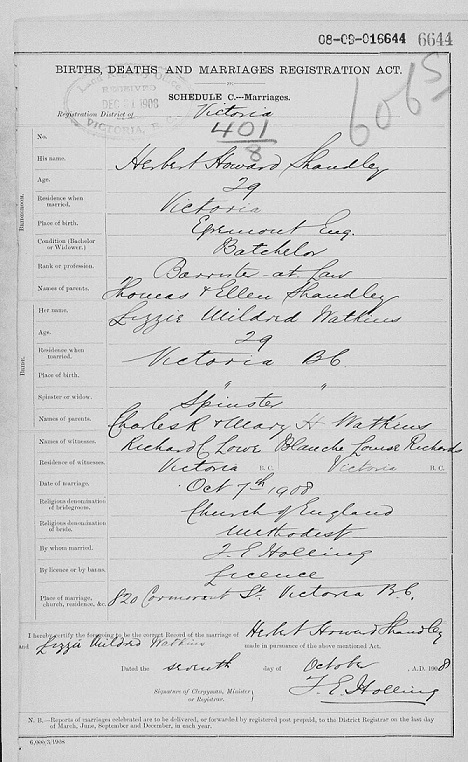 08-09-016644 6644
BIRTHS, DEATHS AND MARRIAGES REGISTRATION ACT.
RECEIVED
DEC 31 1908
VICTORIA, B.C.
6065
SCHEDULE C.—Marriages.
Registration District of Victoria
No. 401/8
Bridegroom.
His name. Herbert Howard Shandley
Age. 29
Residence when married. Victoria
Place of birth. Egremont Eng.
Condition (Bachelor or Widower.) Batchelor
Rank or profession. Barrister-at-Law
Names of parents. Thomas & Ellen Shandley
Bride.
Her name. Lizzie Mildred Watkins
Age. 29
Residence when married. Victoria BC
Place of birth. " "
Spinster or widow. Spinster
Names of parents. Charles R & Mary H. Watkins
Names of witnesses. Richard C Lowe Blanche Louise Richards
Residence of witnesses. Victoria B.C. Victoria B.C.
Date of marriage. Oct 7th 1908
Religious denomination of bridegroom. Church of England
Religious denomination of bride. Methodist
By whom married. T. E. Holling
By licence or by banns. Licence
Place of marriage, church, residence, &c. 820 Cormorant St. Victoria B.C.
I hereby certify the foregoing to be the correct Record of the marriage of Herbert Howard Shandley
and Lizzie Mildred Watkins made in pursuance of the above mentioned Act.
Dated the seventh day of October, A.D. 1908
Signature of Clergyman, Minister or Registrar. T. E. Holling
N. B.—Reports of marriages celebrated are to be delivered, or forwarded by registered post prepaid, to the District Registrar on the last day
of March, June, September and December, in each year.
6,000/3/1908